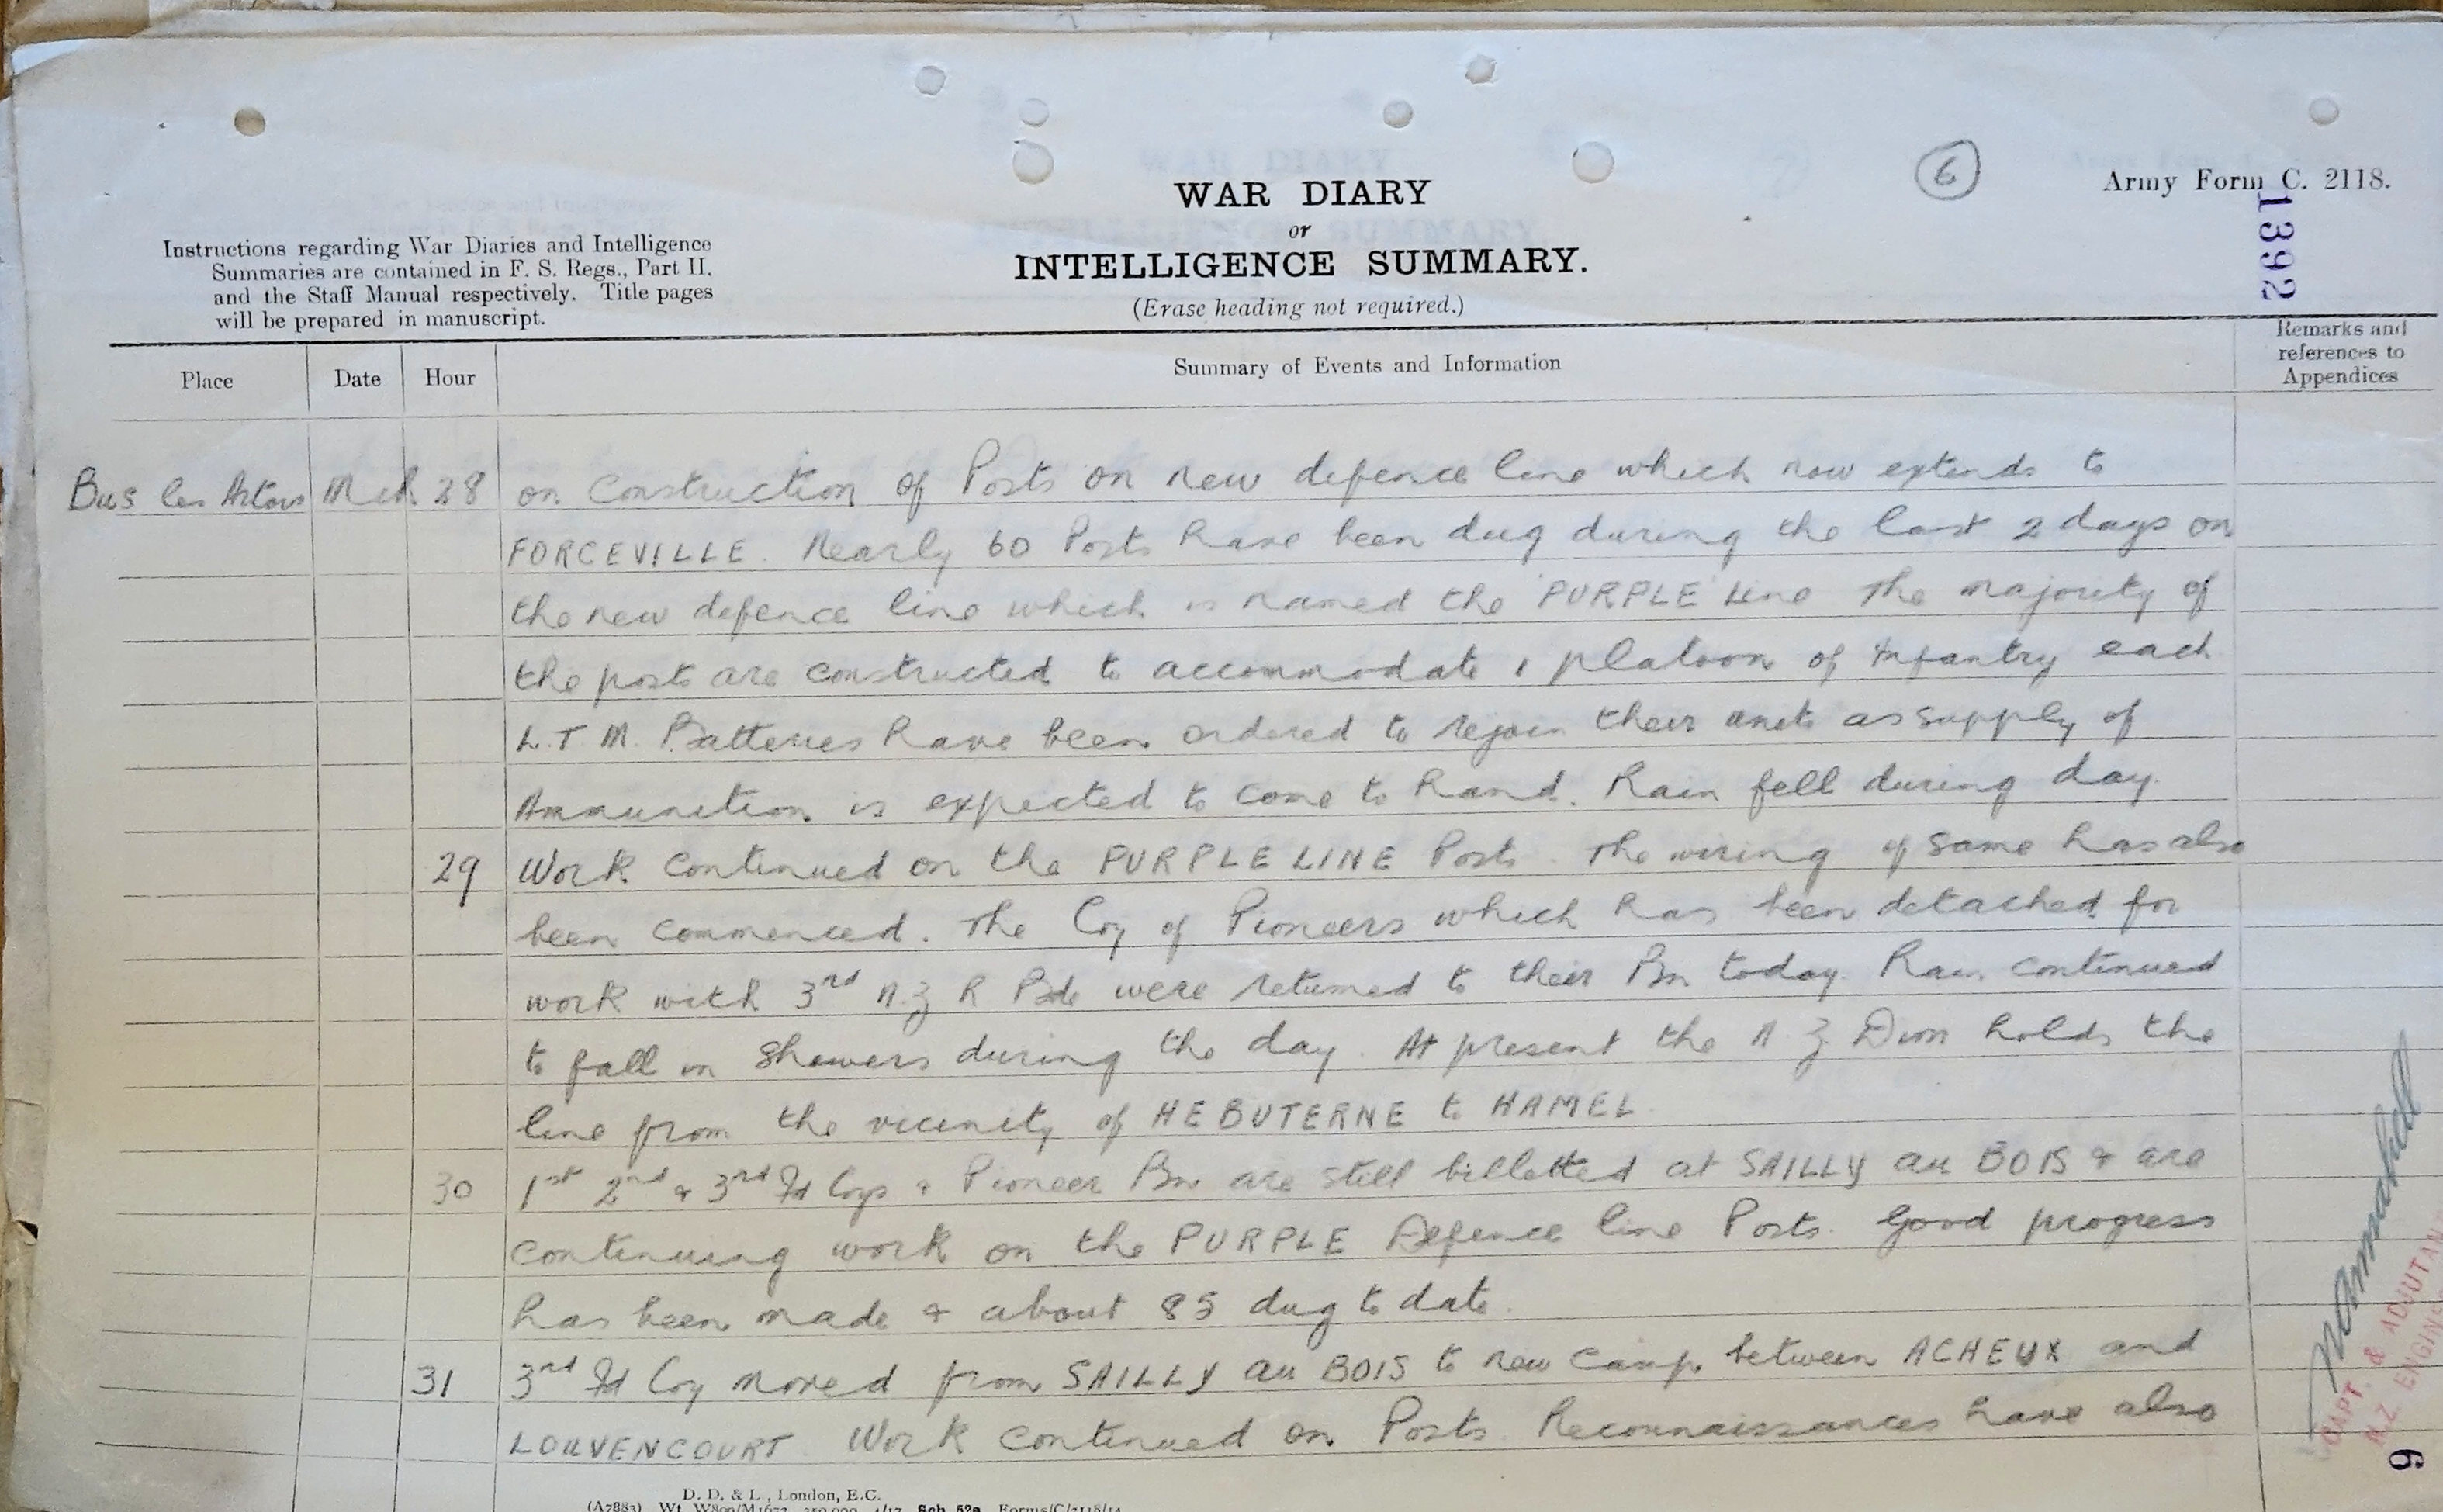 6
Army Form C. 2118.
1392
WAR DIARY
or
INTELLIGENCE SUMMARY.
(Erase heading not required.)
Instructions regarding War Diaries and Intelligence
Summaries are contained in F. S. Regs., Part II.
and the Staff Manual respectively. Title pages
will be prepared in manuscript.
Place Date Hour Summary of Events and Information
Remarks and
references to
Appendices
Bus les Artois Mch 28 on construction of Posts on new defence line which now extends to
FORCEVILLE. Nearly 60 Posts have been dug during the last 2 days on
the new defence line which is named the 'PURPLE' Line The majority of
the posts are constructed to accommodate 1 platoon of Infantry each
L.T.M. Batteries have been ordered to rejoin their units as supply of
Ammunition is expected to come to hand. Rain fell during day.
29 Work continued on the PURPLE LINE Posts. The wiring of same has also
been commenced. The Coy of Pioneers which has been detached for
work with 3rd N.Z R Bde were returned to their Bn today. Rain continued
to fall in showers during the day. At present the N.Z. Divn holds the
line from the vicinity of HEBUTERNE to HAMEL.
30 1st 2nd & 3rd Fd Coys & Pioneer Bn are still billetted at SAILLY au BOIS & are
continuing work on the PURPLE Defence line Posts. Good progress
has been made & about 85 dug to date.
31 3rd Fd Coy moved from SAILLY au BOIS to new Camp between ACHEUX and
LOUVENCOURT. Work continued on Posts. Reconnaissances have also
CAPT. & ADJUTANT
N.Z. ENGINE
6
D. D. & L., London, E.C.
(A7883) Wt. W809/M1672 350,000 4/17 Sch. 52a Forms/C/2118/14